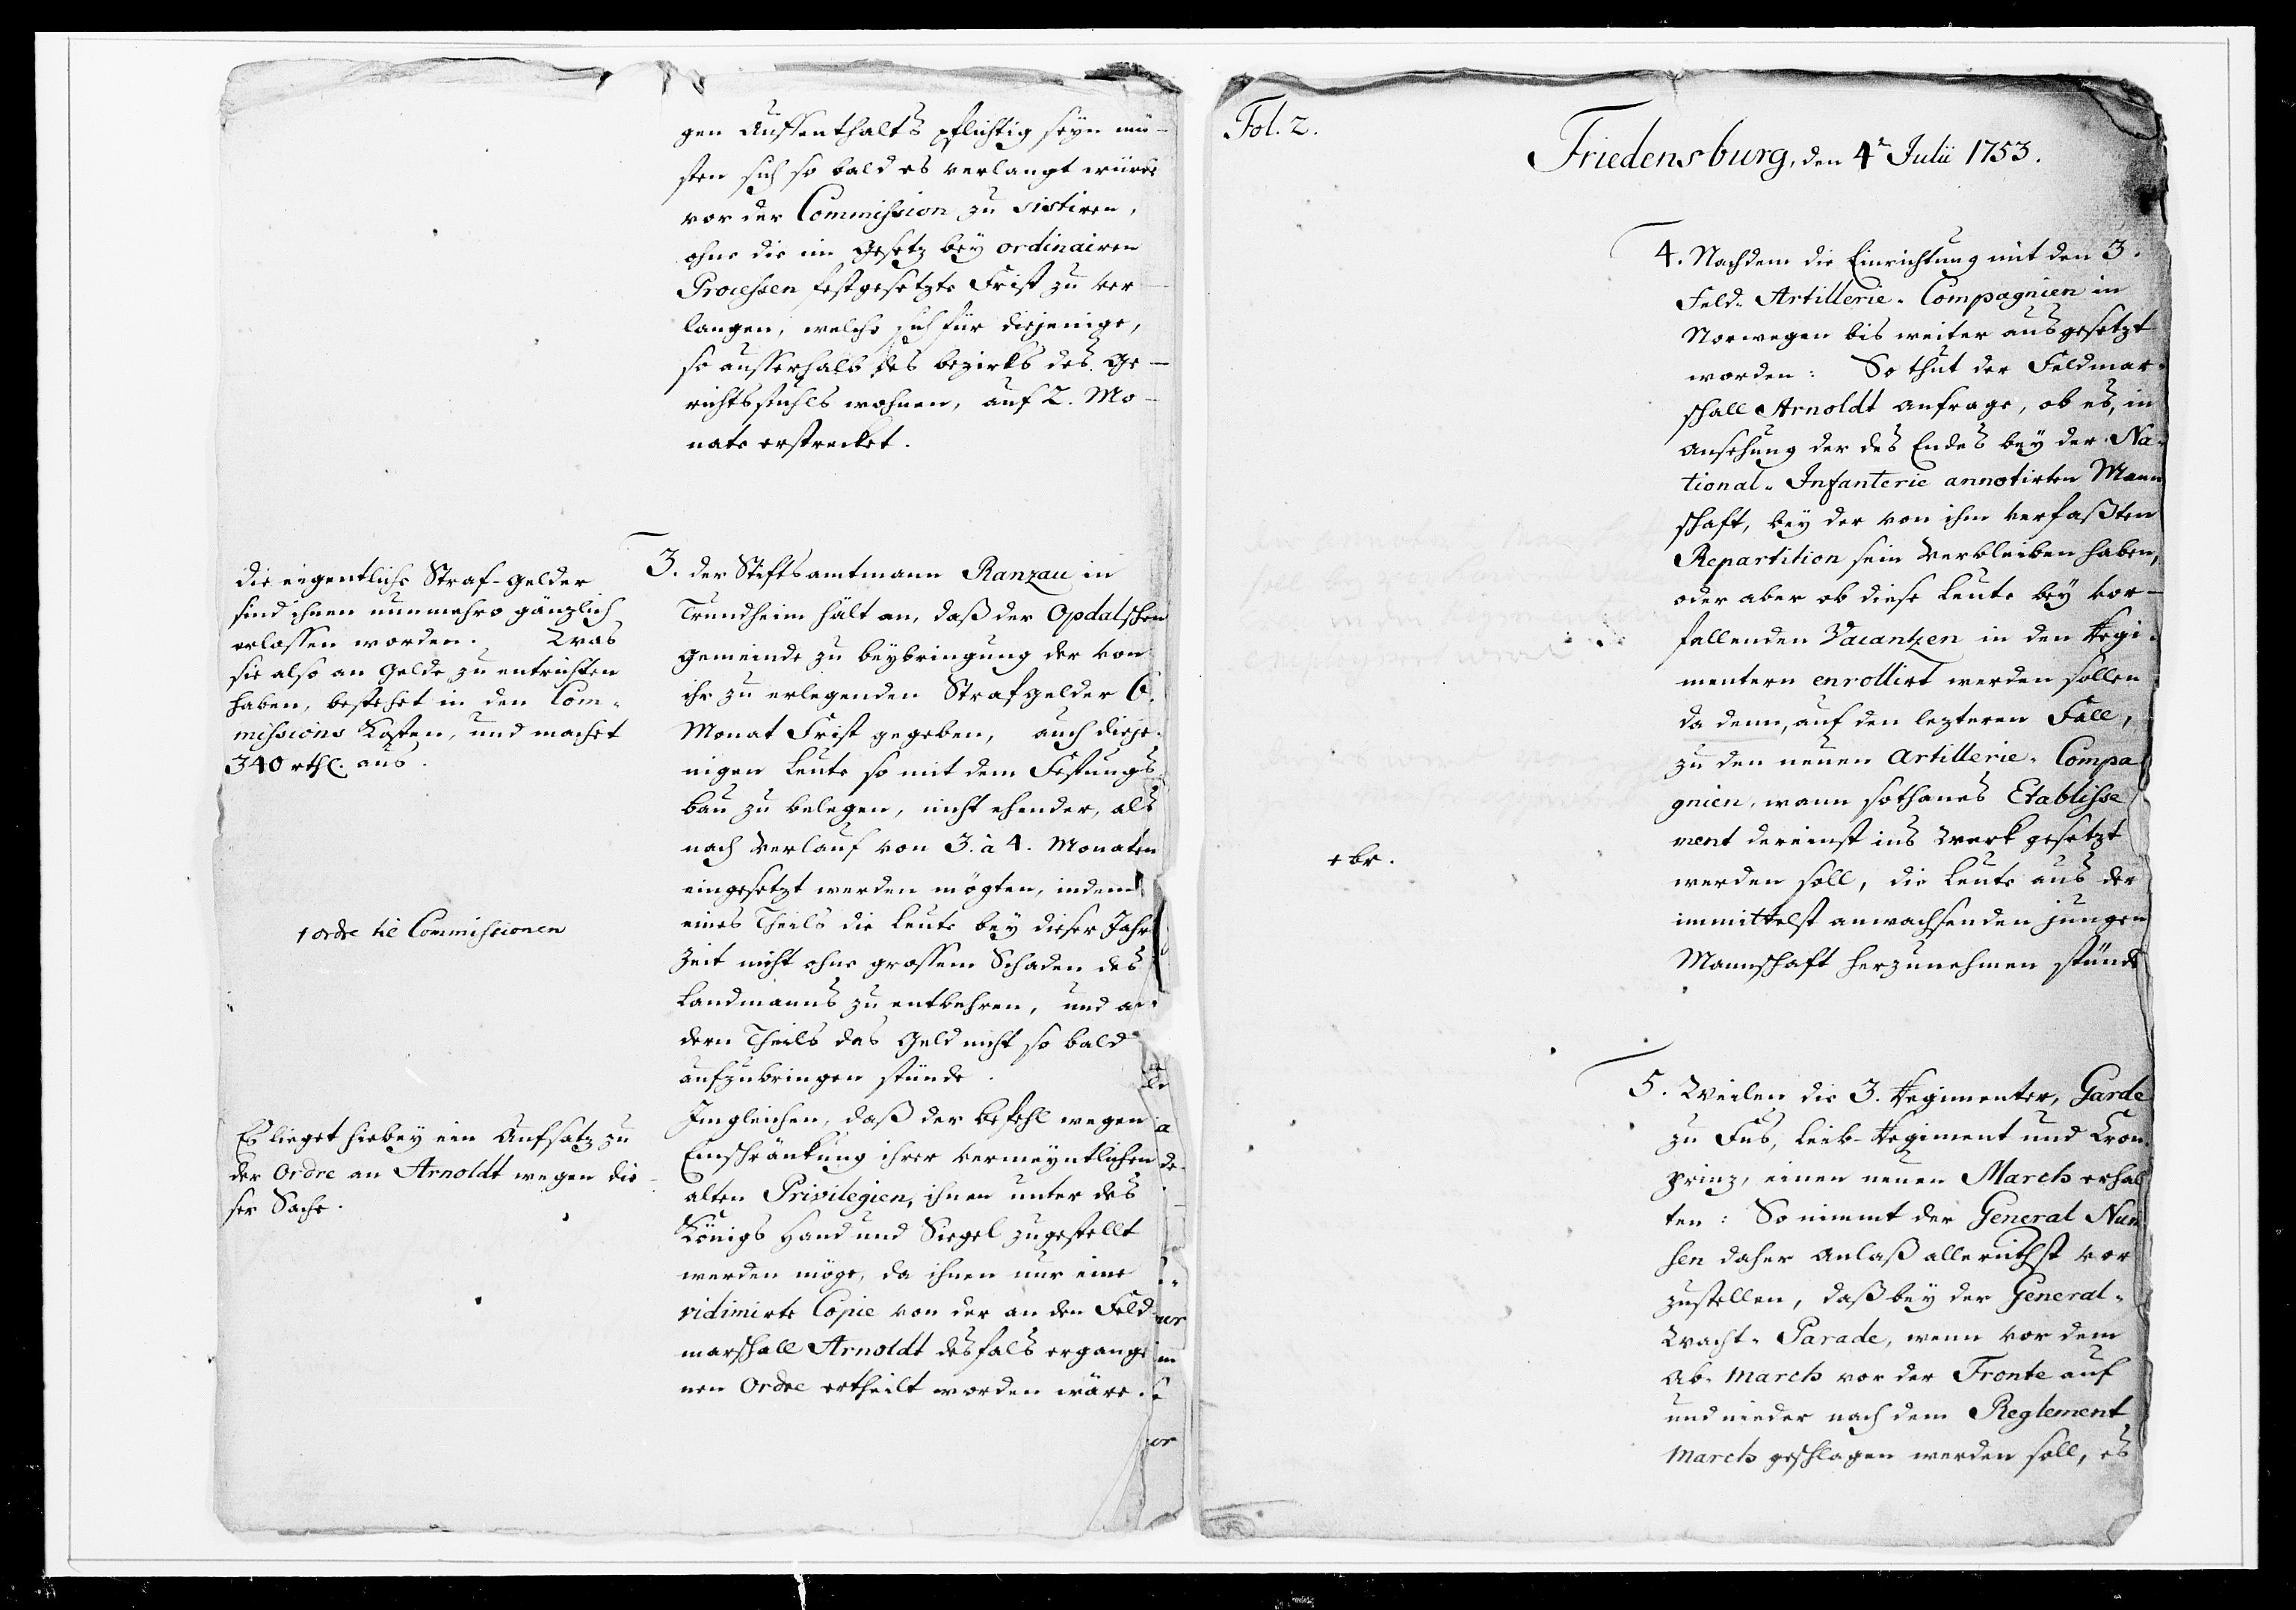 gen Auffenthalts pflichtig seyn mü-
sten sich so bald es verlangt würde
vor der Commission zu sistiren,
ohne die im Gesetz bey ordinairen
Processen festgesetzte Frist zu ver-
langen, welche sich für diejenige,
so ausserhalb des bezirks des Ge-
richtsstuhls wohnen, auf 2. Mo-
nate erstrecket.
3. der Stiftsamtmann Ranzau in
Trundheim hält an, daß der Opdalschen
Gemeinde zu beybringung der von
ihr zu erlegenden Strafgelder 6.
Monat Frist gegeben, auch dieje-
nigen Leute so mit dem Festungs-
bau zu belegen, nicht ehender, als
nach Verlauf von 3. à 4. Monaten
eingesetzt werden mögten, indem
eines Theils die Leute bey dieser Jahr
Zeit nicht ohne grossem Schaden des
Landmanns zu entbehren, und an-
dern Theils das Geld nicht so bald
aufzubringen stünde.
Imgleichen, daß der Befehl wegen
Einschränkung ihrer vermeyntlichen
alten Privilegien, ihnen unter des
Königs Hand und Siegel zugestellt
werden möge, da ihnen nur eine
vidimirte Copie von der an den Feld-
marschall Arnoldt desfals ergange
nen Ordre ertheilt worden wäre.
die eigentliche Straf-Gelder
sind ihnen nunmehro gänzlich
erlassen worden. Was
sie also an Gelde zu entrichten
haben, bestehet in den Com-
missions Kosten, und machet
340 rthl. aus.
1 ordre til Commissionen
Es lieget hiebey ein Aufsatz zu
der Ordre an Arnoldt wegen die-
ser Sache.
Fol. 2.
Friedensburg, den 4t Julii 1753.
4. Nachdem die Einrichtung mit den 3.
Feld-Artillerie-Compagnien in
Norwegen bis weiter ausgesetzt
worden: So thut der Feldmar-
schall Arnoldt anfrage, ob es, in
ansehung der des Endes bey der Na-
tional-Infanterie annotirten Mann
schaft, bey der von ihm verfaßten
Repartition sein Verbleiben haben,
oder aber ob diese Leute bey vor-
fallenden Vacantzen in den Regi-
mentern enrollirt werden sollen
da denn, auf den lezteren Fall,
zu den neuen Artillerie-Compa
gnien, wann sothanes Etablisse
ment dereinst ins Werk gesetzt
werden soll, die Leute aus der
immittelst anwachsenden jungen
Mannschaft herzunehmen stünde
5. Weilen die 3. Regimenter, Garde
zu Fus, Leib-Regiment und Kron-
prinz, einen neuen March erhal
ten: So nimmt der General Num
sen daher Anlaß allerunthst vor
zustellen, daß bey der General-
Wacht-Parade, wenn vor dem
Ab-march vor der Fronte auf
und nieder nach dem Reglement
March geschlagen werden soll, es